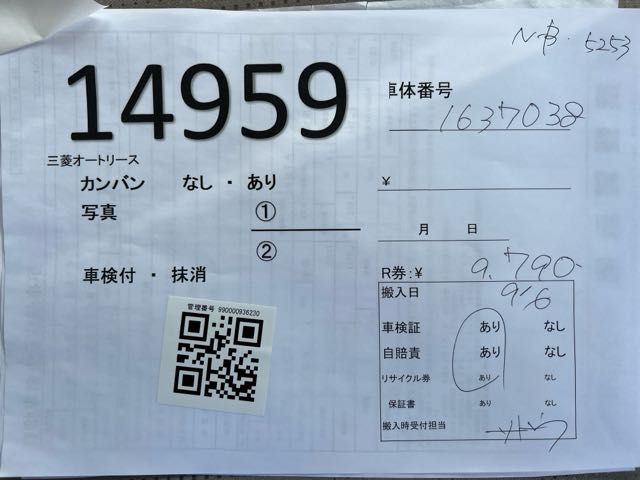 NB. 5253
14959
車体番号
1637038
三菱オートリース
カンバン なし ・ あり
¥
写真 ①
②
月 日
車検付 ・ 抹消
R券:¥ 9,790-
搬入日 9/6
管理番号 990000936230
車検証 あり なし
自賠責 あり なし
リサイクル券 あり なし
保証書 あり なし
搬入時受付担当